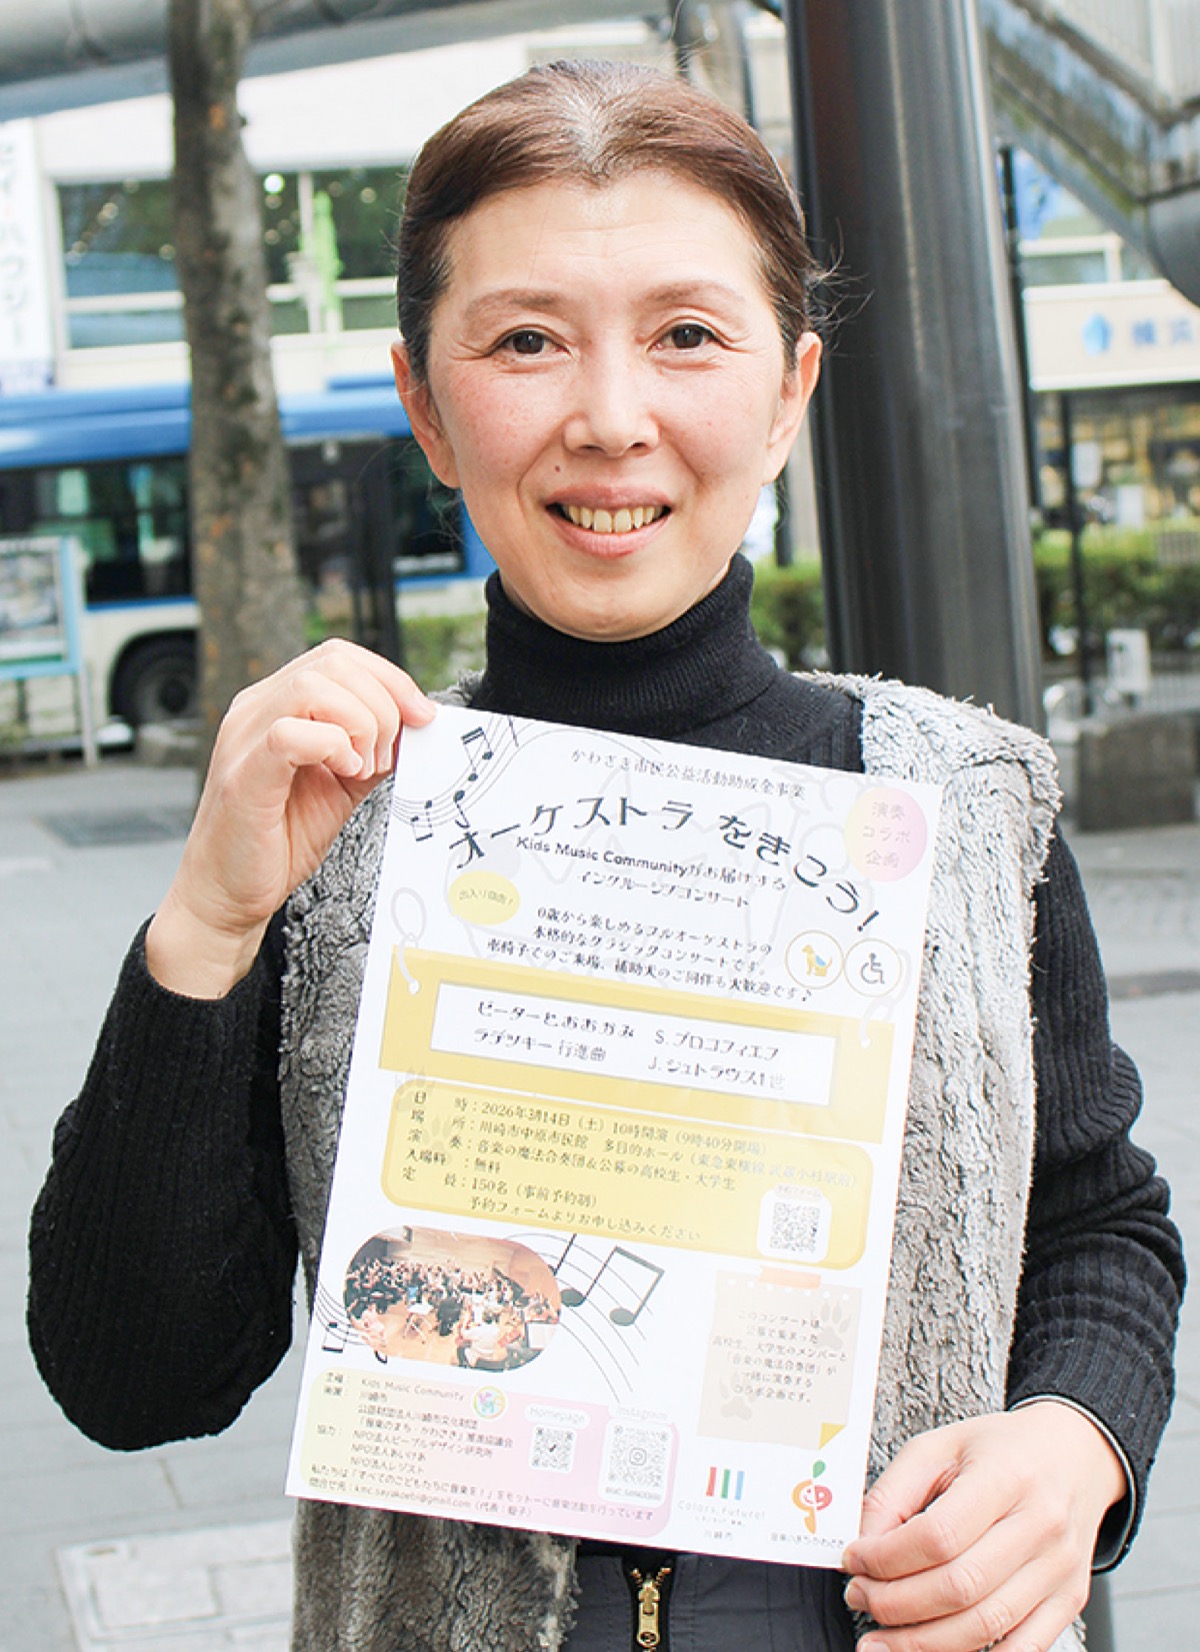 かわさき市民公益活動助成金事業
オーケストラをきこう!
演奏
コラボ
企画
Kids Music Communityがお届けする
インクルーシブコンサート
出入り自由!
0歳から楽しめるフルオーケストラの
本格的なクラシックコンサートです。
車椅子でのご来場、補助犬のご同伴も大歓迎です♪
ピーターとおおかみ S.プロコフィエフ
ラデツキー行進曲 J.シュトラウス1世
日時:2026年3月14日(土)10時開演(9時40分開場)
場所:川崎市中原市民館 多目的ホール(東急東横線 武蔵小杉駅前)
演奏:音楽の魔法合奏団&公募の高校生・大学生
入場料:無料
定員:150名(事前予約制)
予約フォームよりお申し込みください
予約フォーム
このコンサートは、
公募で集まった
高校生、大学生のメンバーと
「音楽の魔法合奏団」が
一緒に演奏する
コラボ企画です。
主催: Kids Music Community
後援: 川崎市
公益財団法人川崎市文化財団
「音楽のまち・かわさき」推進協議会
協力: NPO法人ピープルデザイン研究所
NPO法人あいけあ
NPO法人レジスト
私たちは「すべてのこどもたちに音楽を!」をモットーに音楽活動を行っています
Homepage
Instagram
Colors, Future!
川崎市
音楽のまちかわさき
横浜